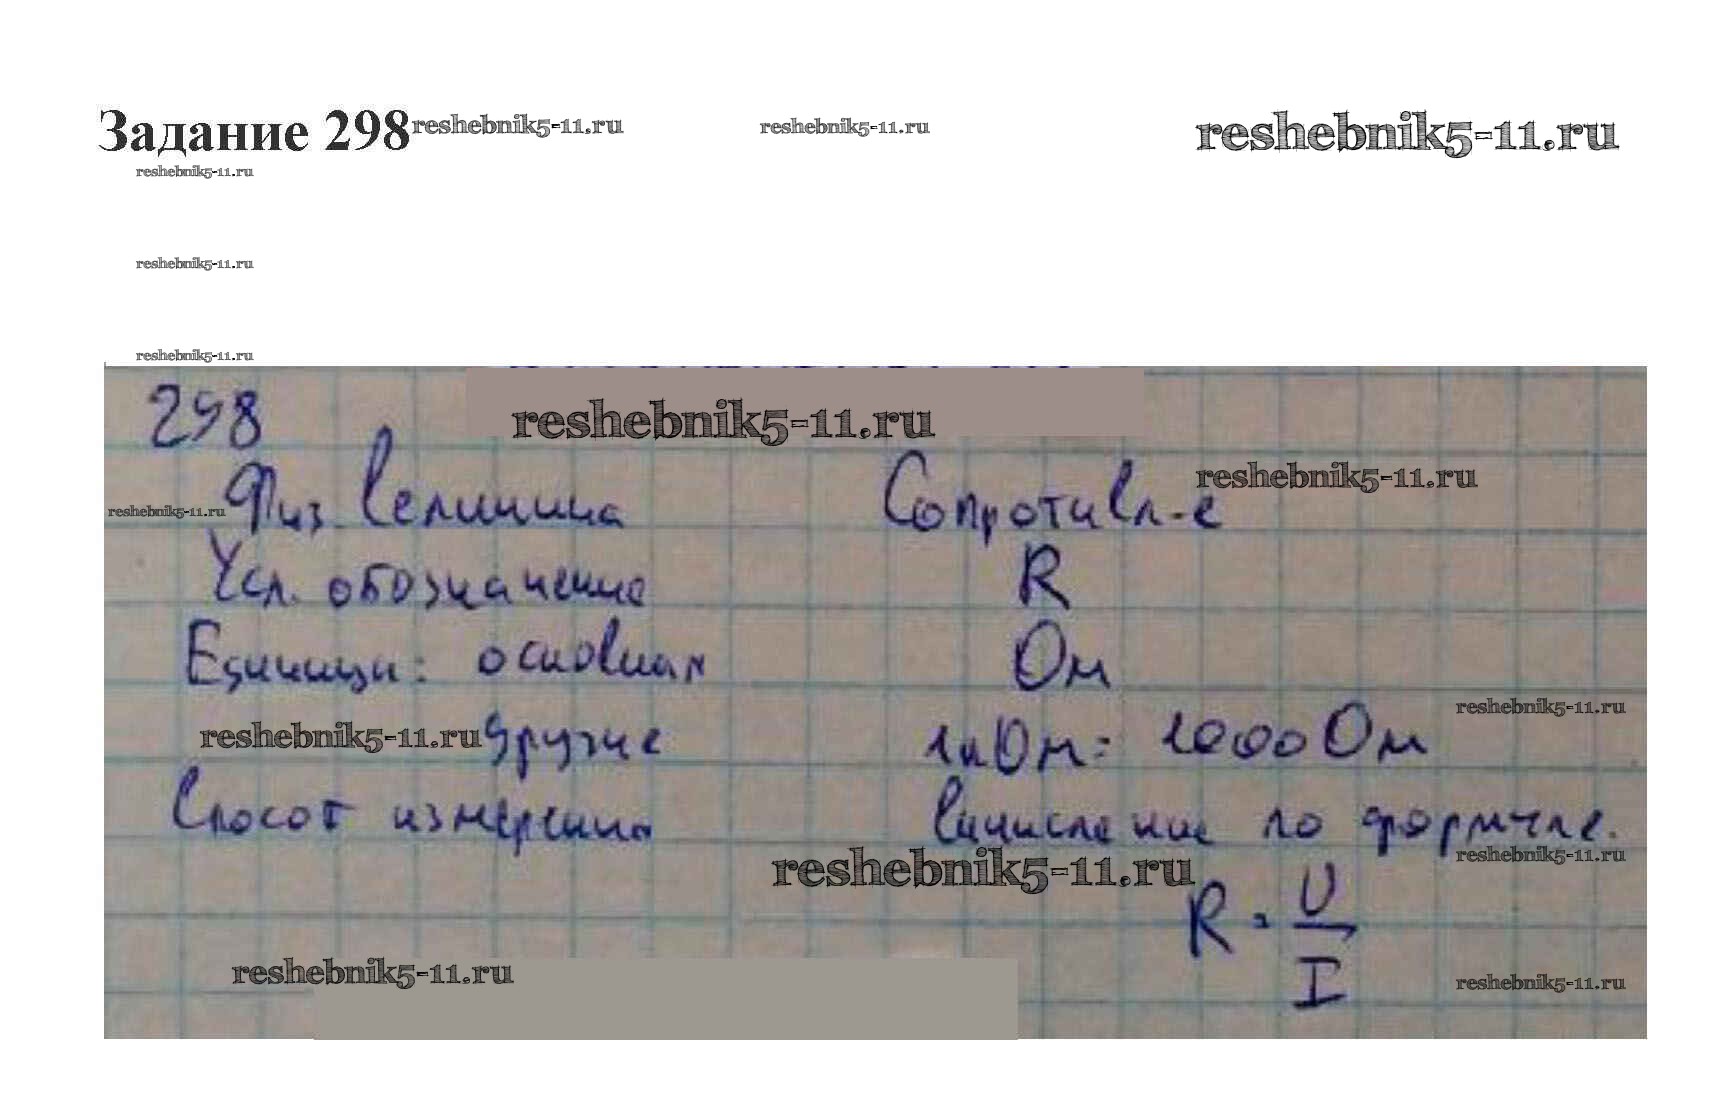 Задание 298 reshebnik5-11.ru reshebnik5-11.ru reshebnik5-11.ru
reshebnik5-11.ru
reshebnik5-11.ru
reshebnik5-11.ru
298
reshebnik5-11.ru
reshebnik5-11.ru
reshebnik5-11.ru Физ величина Сопротивл-е
Усл. обозначение R
Единицы: основная Ом
reshebnik5-11.ru
reshebnik5-11.ru другие 1кОм = 1000 Ом
Способ измерения вычисление по формуле.
reshebnik5-11.ru
reshebnik5-11.ru
R = U / I
reshebnik5-11.ru
reshebnik5-11.ru